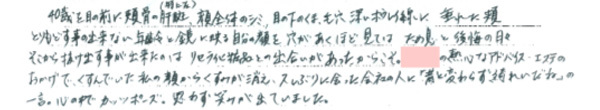 (明らか)
40歳を目の前に頬骨の肝斑、顔全体のシミ、目の下のくま、毛穴 深いほうれい線に垂れた頬
どうにもする事の出来ない 鏡に映る自分の顔を穴があくほど見ては ため息と後悔の日々
そこから抜け出す事が出来たのは リセラ化粧品との出合いがあったからこそ。 の熱心なアドバイス・エステの
おかげで、くすんでいた私の顔からくすみが消え、久しぶりに会った会社の人に「昔と変わらず綺れいだね。」の
一言。心の中でガッツポーズ。思わず笑みが出ていました。